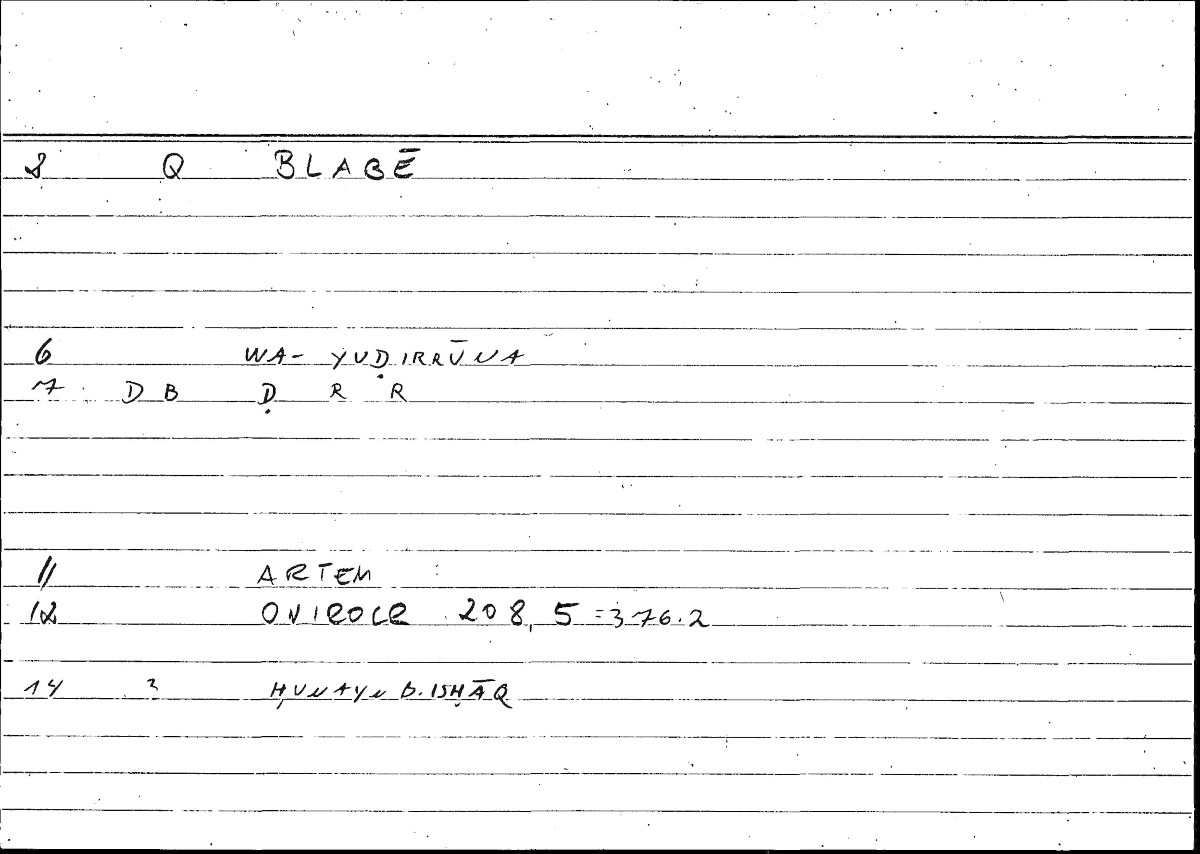 2 Q BLABĒ
6 WA- YUḌIRRŪNA
7 D B Ḍ R R
11 ARTEM
12 ONIROCR 208, 5 = 376.2
14 2 ḤUNAYN B. ISḤĀQ